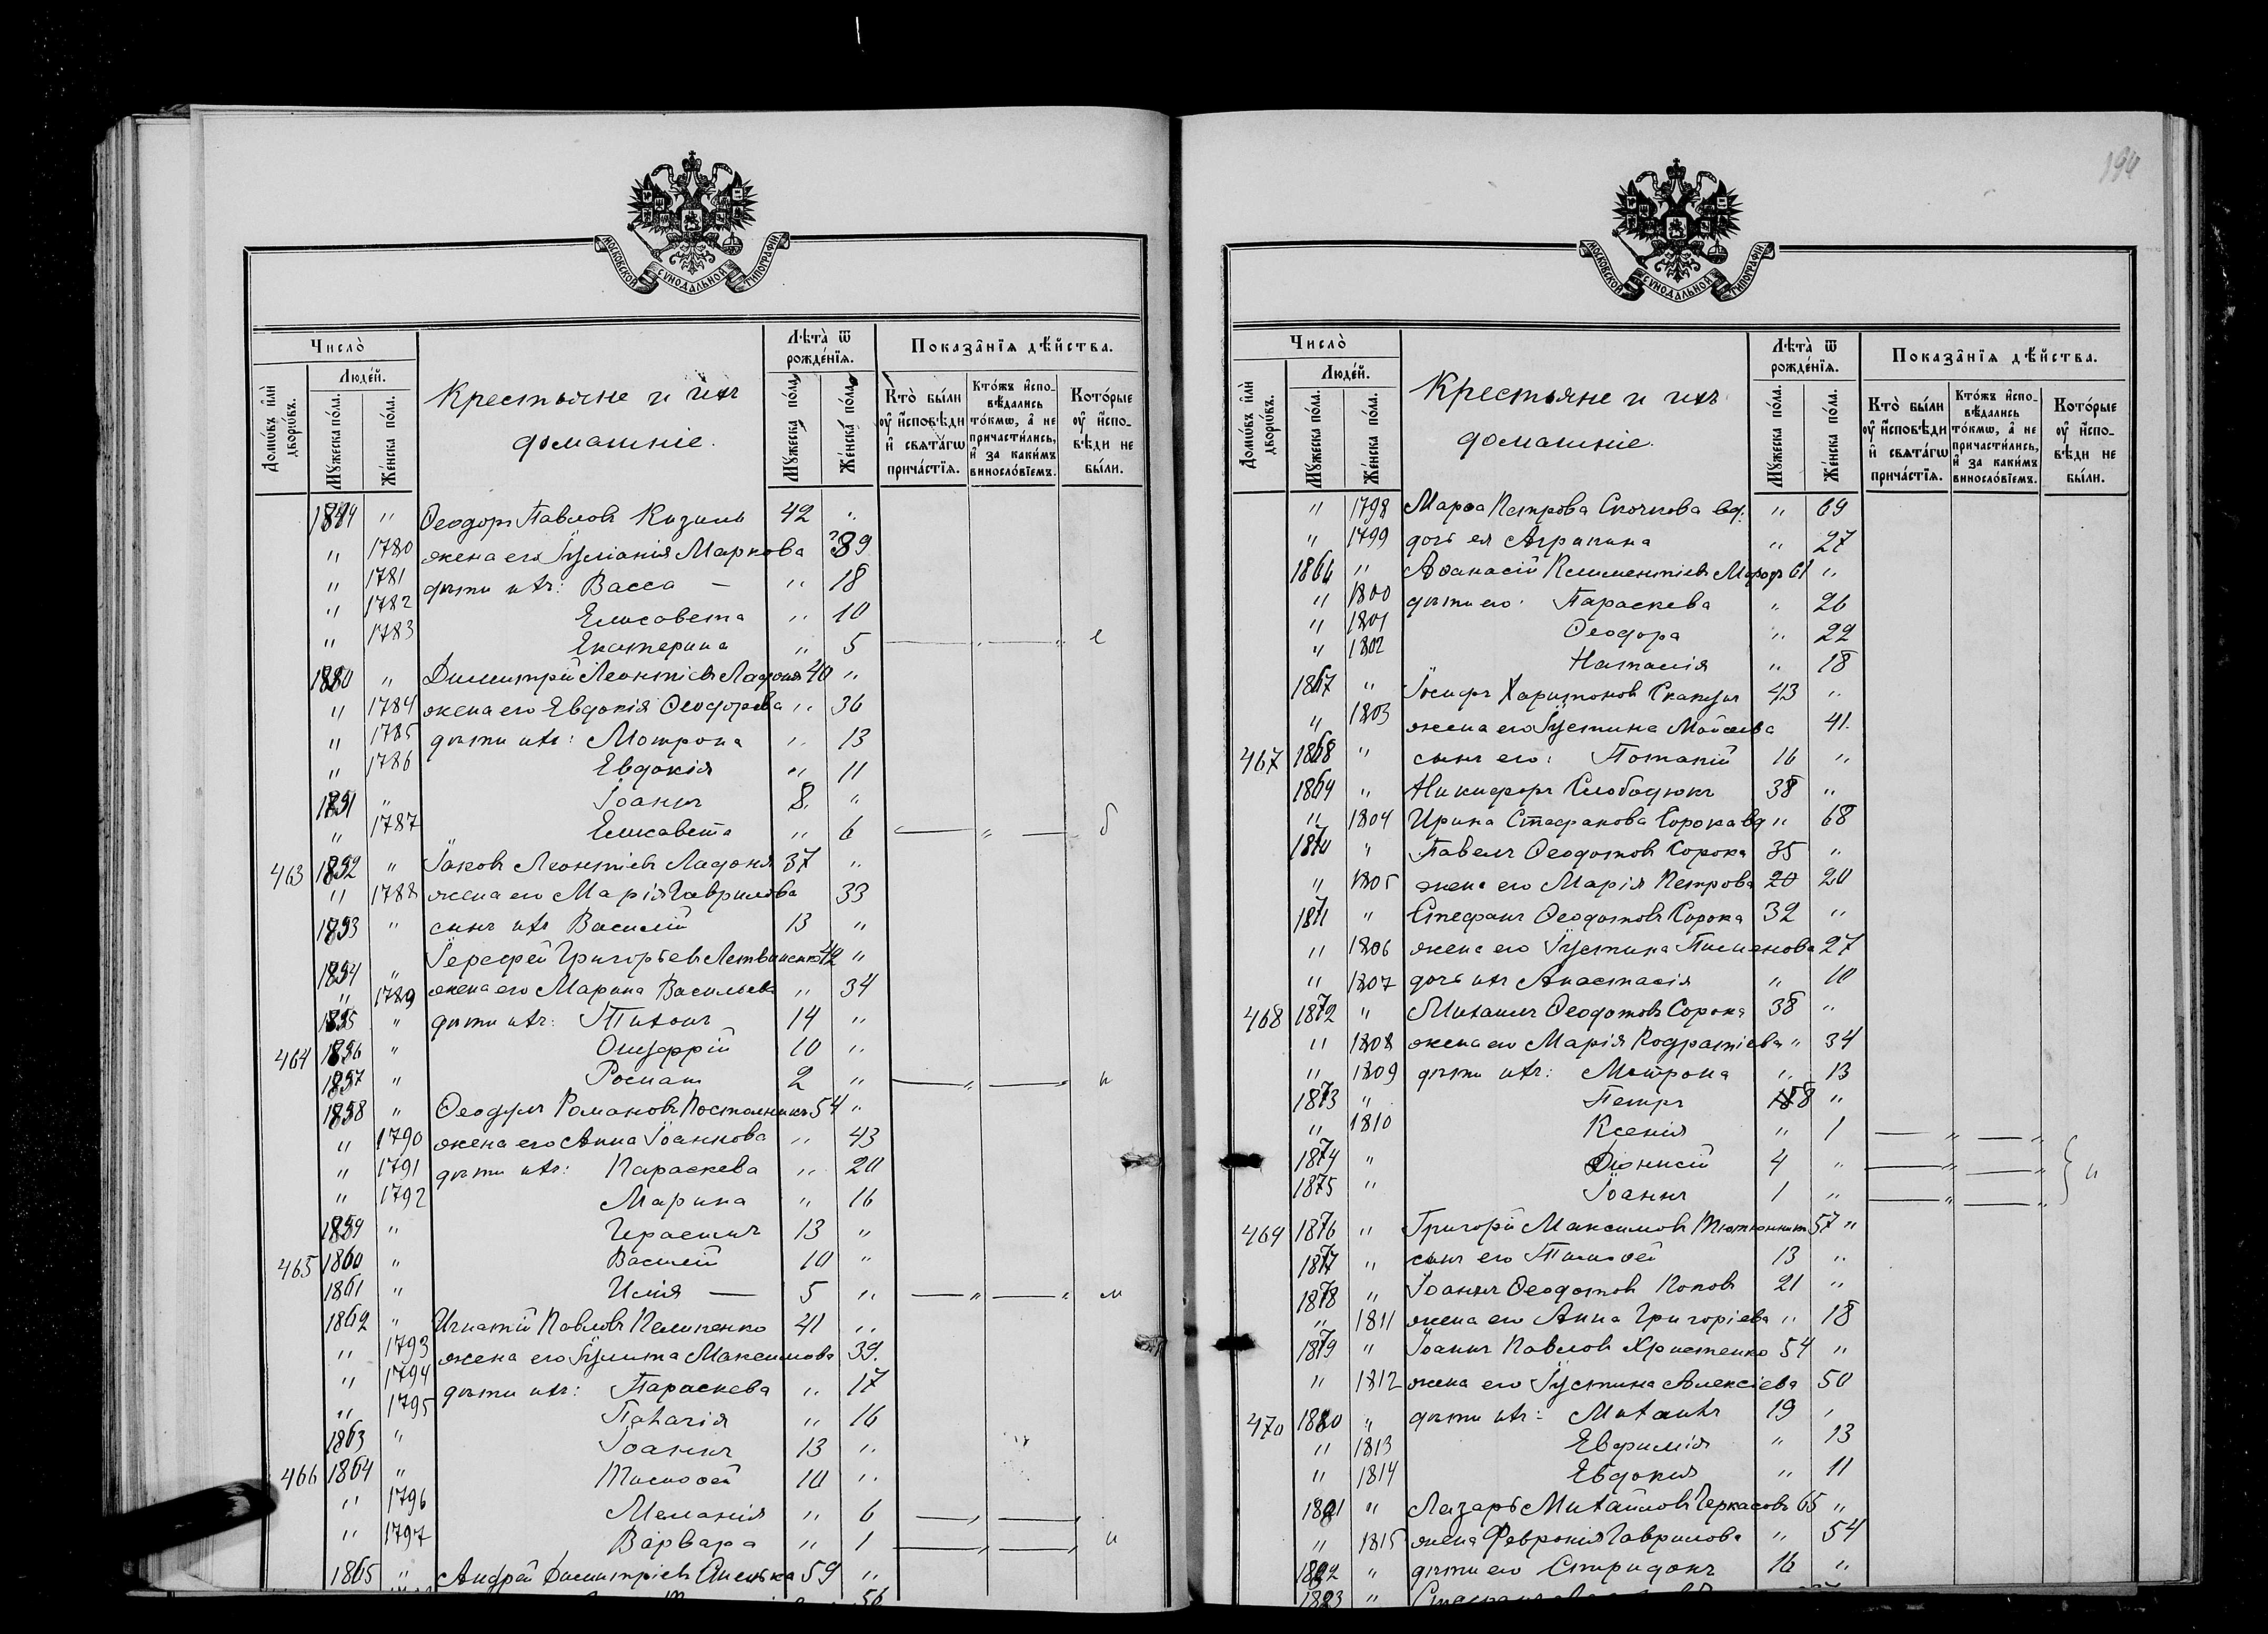 МОСКОВСКОЙ СѴНОДАЛЬНОЙ ТИПОГРАФІИ
Число̀
Лѣта̀ ѿ рожде́нїѧ.
Показа̂нїѧ дѣ́йства.
Домѡ́въ и҆лѝ дворѡ́въ.
Люде́й.
Мꙋ́жеска по́ла.
Же́нска по́ла.
Крестьяне и ихъ
домашніе.
Мꙋ́жеска по́ла.
Же́нска по́ла.
Кто̀ бы́ли ᲂу҆ и҆сповѣди и҆ свѧта́гѡ прича́стїѧ.
Кто́жъ и҆спо-вѣдались то́кмѡ, а҆ не причасти́лись, и҆ за каки́мъ винословїемъ.
Кото́рые ᲂу҆ и҆спо-вѣди не бы́ли.
1849 " Ѳеодоръ Павловъ Кизимъ 42 "
" 1780 жена его Іуліанія Маркова 39
" 1781 дѣти ихъ: Васса — " 18
" 1782 Елисавета " 10
" 1783 Екатерина " 5 — " — "
1850 " Димитрій Леонтіевъ Ладоня 40 "
" 1784 жена его Евдокія Ѳеодорова " 36
" 1785 дѣти ихъ: Мотрона " 13
" 1786 Евдокія " 11
1851 " Іоаннъ 8 "
" 1787 Елисавета " 6 — " —
463 1852 " Іаковъ Леонтіевъ Ладоня 37 "
" 1788 жена его Марія Гаврилова 33
1853 " сынъ ихъ Василій 13 "
1854 " Григорьевъ 42 "
" 1789 жена его Марина Васильева " 34
1855 " дѣти ихъ: Тихонъ 14 "
464 1856 " Онуфрій 10 "
1857 " 2 " — " — " и
1858 " Ѳеодулъ Романовъ 54 "
" 1790 жена его Анна Іоаннова " 43
" 1791 дѣти ихъ: Параскева " 20
" 1792 Марина " 16
1859 " Герасимъ 13 "
465 1860 " Василій 10 "
1861 " Илія — 5 " — " — " м
1862 " Игнатій Павловъ Пелипенко 41 "
" 1793 жена его Іулита Максимова 39.
" 1794 дѣти ихъ: Параскева " 17
" 1795 Пелагія " 16
1863 " Іоаннъ 13 "
466 1864 " Тимоѳей 10 "
" 1796 Меланія " 6 — " — "
" 1797 Варвара " 1 — " — " и
1865 " Андрей Димитріевъ 59 "
56
194
МОСКОВСКОЙ СѴНОДАЛЬНОЙ ТИПОГРАФІИ
Число̀
Лѣта̀ ѿ рожде́нїѧ.
Показа̂нїѧ дѣ́йства.
Домѡ́въ и҆лѝ дворѡ́въ.
Люде́й.
Мꙋ́жеска по́ла.
Же́нска по́ла.
Крестьяне и ихъ
домашніе.
Мꙋ́жеска по́ла.
Же́нска по́ла.
Кто̀ бы́ли ᲂу҆ и҆сповѣди и҆ свѧта́гѡ прича́стїѧ.
Кто́жъ и҆спо-вѣдались то́кмѡ, а҆ не причасти́лись, и҆ за каки́мъ винословїемъ.
Кото́рые ᲂу҆ и҆спо-вѣди не бы́ли.
" 1798 Марѳа Петрова Скочкова вд. " 69
" 1799 дочь ея Агрипина " 27
1866 " Аѳанасій Климентіевъ 61 "
" 1800 дѣти его: Параскева " 26
" 1801 Ѳеодора " 22
" 1802 Наталія " 18
1867 " Іосифъ Харитоновъ 43 "
" 1803 жена его Іустина Моисеева 41.
467 1868 " сынъ его: Потапій 16 "
1869 " Никифоръ Слободюкъ 38 "
" 1804 Ирина Стефанова Сорока вд " 68
1870 " Павелъ Ѳеодотовъ Сорока 35 "
" 1805 жена его Марія Петрова 20 20
1871 " Стефанъ Ѳеодотовъ Сорока 32 "
" 1806 жена его Іустина Пименова 27
" 1807 дочь ихъ Анастасія " 10
468 1872 " Михаилъ Ѳеодотовъ Сорока 38 "
" 1808 жена его Марія Кодратіева " 34
" 1809 дѣти ихъ: Мотрона " 13
1873 " Петръ 8 "
" 1810 Ксенія " 1 — " — "
1874 " Діонисій 4 " — " — " и
1875 " Іоаннъ 1 " — " — "
469 1876 " Григорій Максимовъ Тютюнникъ 57 "
1877 " сынъ его Тимоѳей 13 "
1878 " Іоаннъ Ѳеодотовъ Поповъ 21 "
" 1811 жена его Анна Григоріева " 18
1879 " Іоаннъ Павловъ Христенко 54 "
" 1812 жена его Іустина Алексіева 50
470 1880 " дѣти ихъ: Михаилъ 19 "
" 1813 Евфимія " 13
" 1814 Евдокія " 11
1881 " Лазарь Михайловъ Черкасовъ 65 "
" 1815 жена Февронія Гаврилова " 54
1882 " дѣти его Спиридонъ 16 "
1883 "